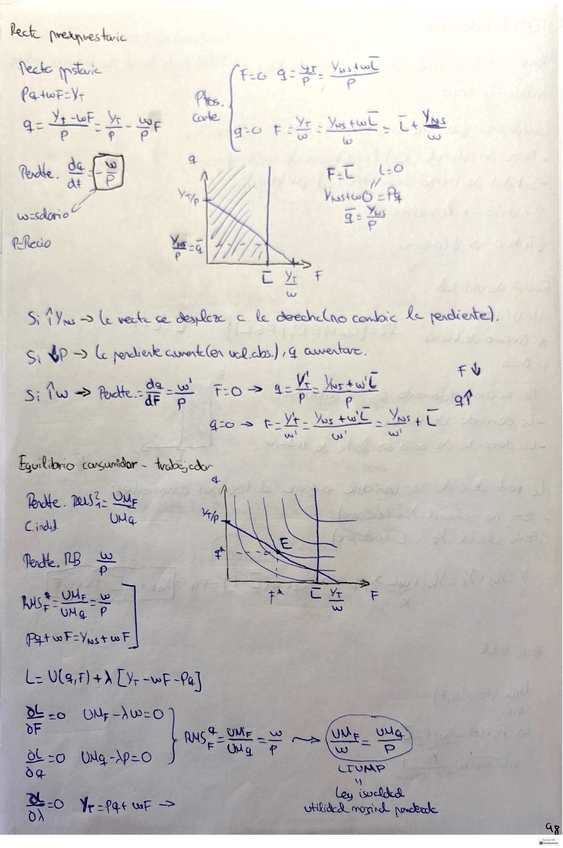 Recta presupuestaria
Recta pstaria
Pq+wF=Y_T
q = (Y_T - wF)/P = Y_T/P - w/P F
Pendte. dq/dt = - w/P
w=salario
P=Recio
Ptos. corte
F=0 q = Y_T/P = (Y_NS + wL̄)/P
q=0 F = Y_T/w = (Y_NS + wL̄)/w = L̄ + Y_NS/w
q
Y_T/P
Y_NS/P = q̄
L̄ Y_T/w F
F=L̄ L=0
Y_NS + w0 = Pq
q̄ = Y_NS/P
Si ↑Y_NS → la recta se desplaza a la derecha (no cambia la pendiente).
Si ↓P → la pendiente aumenta (en val.abs.), q aumentará.
Si ↑w → Pendte. = dq/dF = w'/P F=0 → q = Y_T'/P = (Y_NS + w'L̄)/P
q=0 → F = Y_T'/w' = (Y_NS + w'L̄)/w' = Y_NS/w' + L̄
F↓
q↑
Equilibrio consumidor - trabajador
Pendte. RMS = UM_F/UM_q
C.indif.
Pendte. RB w/P
RMS_F^q = UM_F/UM_q = w/P
Pq + wF = Y_NS + wF
q
Y_T/P
q*
E
F* L̄ Y_T/w F
L = U(q,F) + λ [Y_T - wF - Pq]
∂L/∂F = 0 UM_F - λw = 0
∂L/∂q = 0 UM_q - λP = 0
RMS_F^q = UM_F/UM_q = w/P → UM_F/w = UM_q/P
LIUMP
Ley igualdad
utilidad marginal ponderada
∂L/∂λ = 0 Y_T = Pq + wF →
98